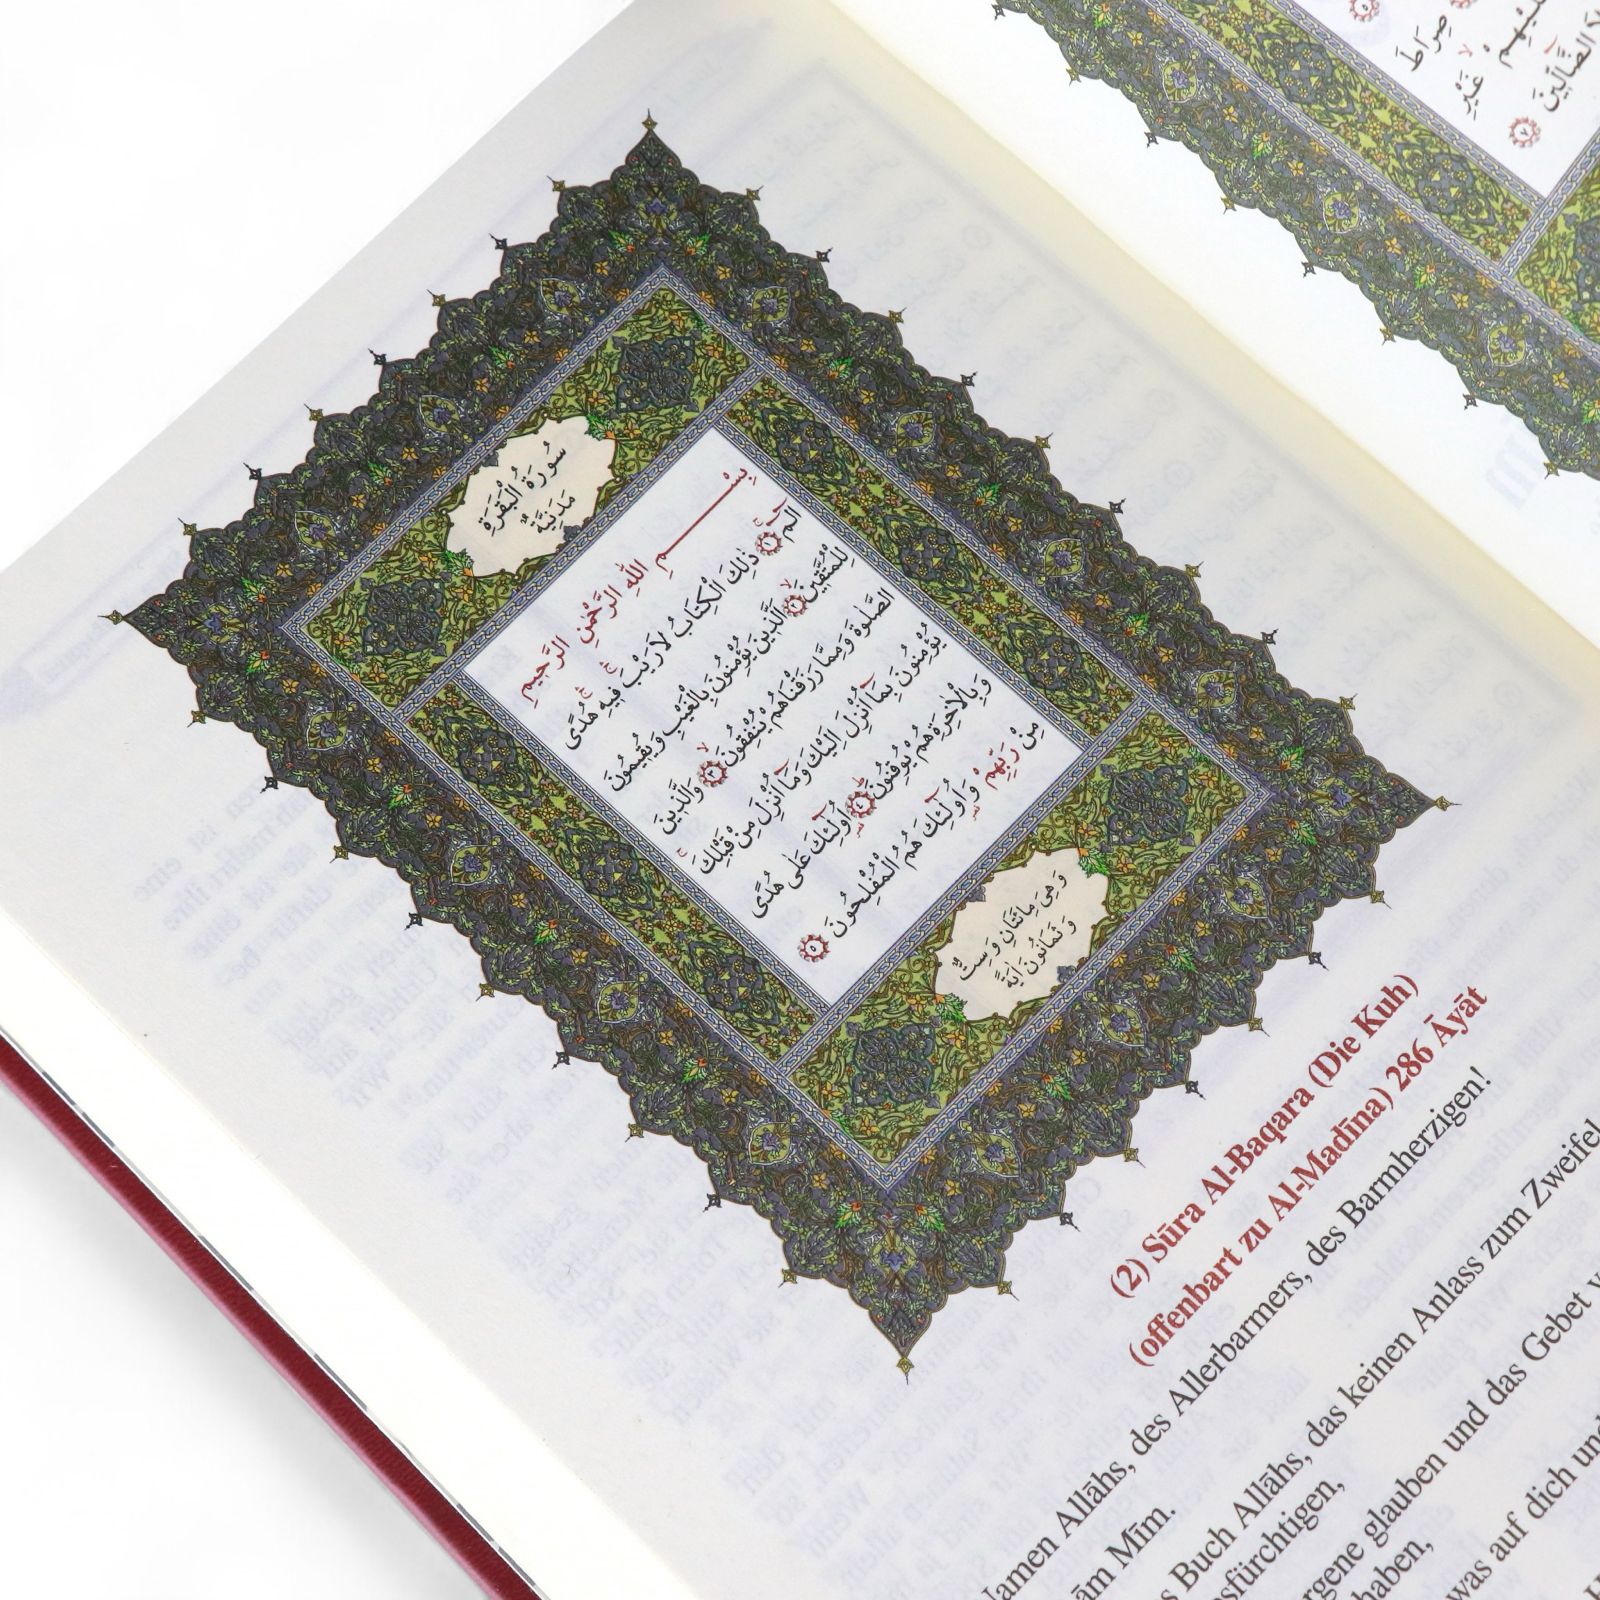 صِرَاطَ
عَلَيْهِمْ غَيْرِ
وَلَا الضَّالِّينَ ٧
سُورَةُ الْبَقَرَةِ
مَدَنِيَّةٌ
بِسْمِ اللهِ الرَّحْمٰنِ الرَّحِيمِ
الٓمٓ ١ ذٰلِكَ الْكِتَابُ لَا رَيْبَ فِيهِ هُدًى
لِلْمُتَّقِينَ ٢ اَلَّذِينَ يُؤْمِنُونَ بِالْغَيْبِ وَيُقِيمُونَ
الصَّلٰوةَ وَمِمَّا رَزَقْنَاهُمْ يُنْفِقُونَ ٣ وَالَّذِينَ
يُؤْمِنُونَ بِمَٓا اُنْزِلَ اِلَيْكَ وَمَٓا اُنْزِلَ مِنْ قَبْلِكَ
وَبِالْاٰخِرَةِ هُمْ يُوقِنُونَ ٤ اُو۬لٰٓئِكَ عَلٰى هُدًى
مِنْ رَبِّهِمْ وَاُو۬لٰٓئِكَ هُمُ الْمُفْلِحُونَ ٥
وَهِيَ مِائَتَانِ وَسِتٌّ
وَثَمَانُونَ اٰيَةً
(2) Sūra Al-Baqara (Die Kuh)
(offenbart zu Al-Madīna) 286 Āyāt
Namen Allāhs, des Allerbarmers, des Barmherzigen!
ām Mīm.
s Buch Allāhs, das keinen Anlass zum Zweifel
sfürchtigen,
rgene glauben und das Gebet v
haben,
was auf dich und